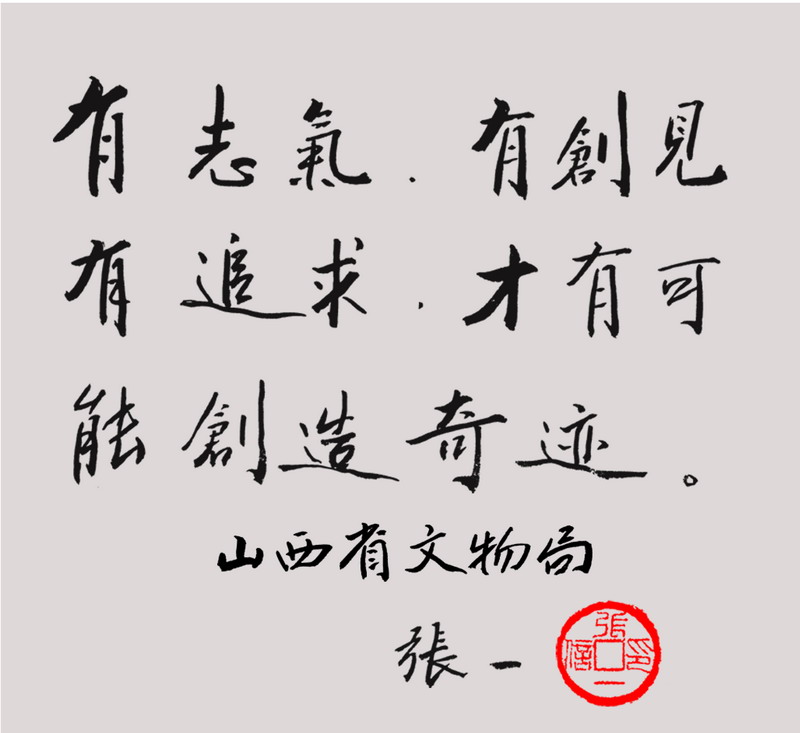 有志氣．有創見
有追求．才有可
能創造奇迹。
山西省文物局
張一
張一信印